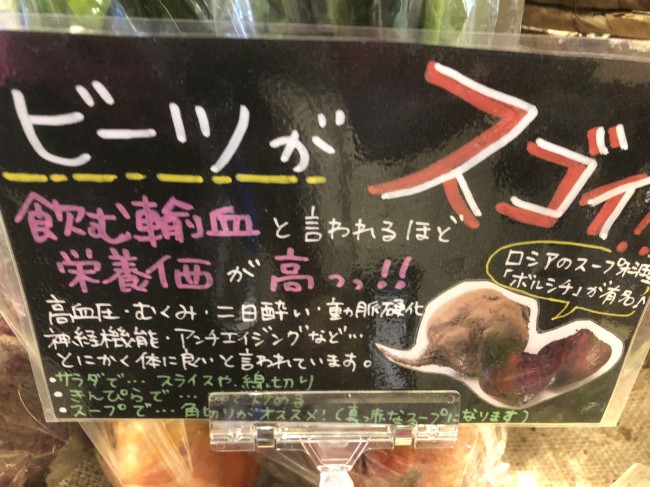 ビーツが スゴイ!!
飲む輸血と言われるほど
栄養価が高っっ!!
ロシアのスープ料理
「ボルシチ」が有名♪
高血圧・むくみ・二日酔い・動脈硬化
神経機能・アンチエイジングなど…
とにかく体に良いと言われています。
・サラダで… スライスや、線切り
・きんぴらで…
・スープで… 角切りがオススメ!(真っ赤なスープになります)